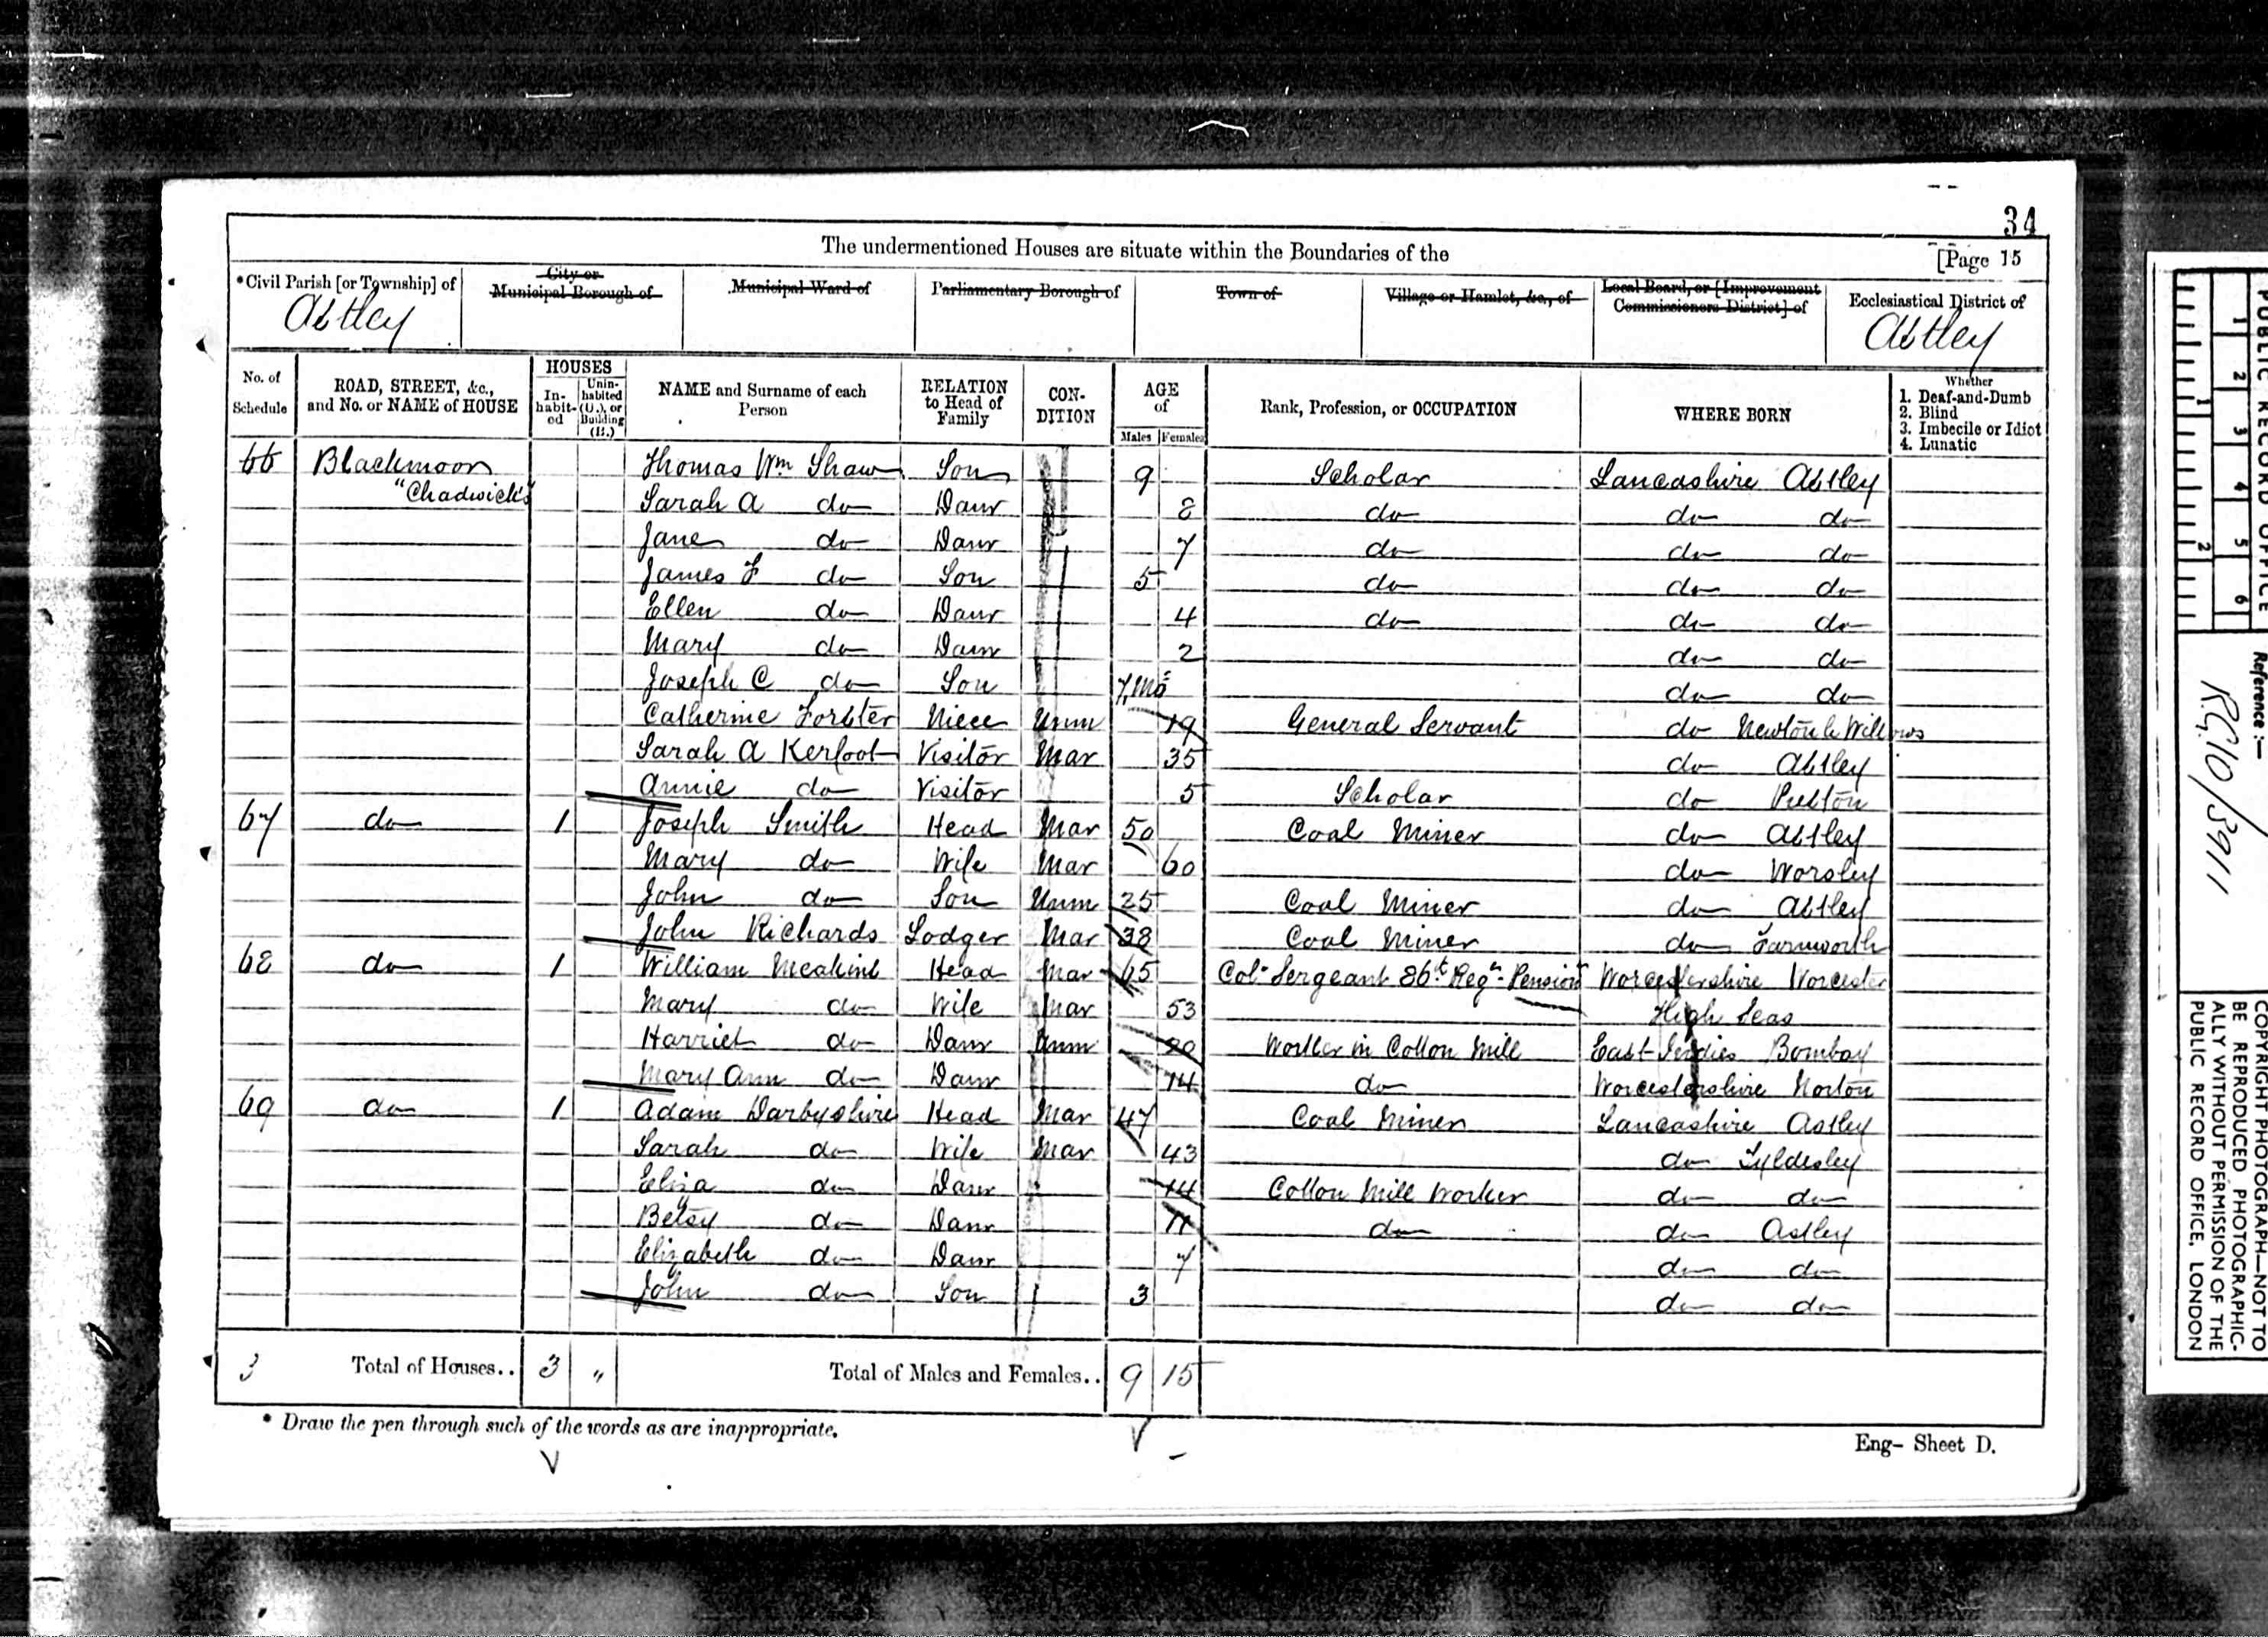 34
The undermentioned Houses are situate within the Boundaries of the
[Page 15
*Civil Parish [or Township] of
City or Municipal Borough of
Municipal Ward of
Parliamentary Borough of
Town of
Village or Hamlet, &c., of
Local Board, or [Improvement Commissioners District] of
Ecclesiastical District of
Astley
Astley
No. of Schedule
ROAD, STREET, &c., and No. or NAME of HOUSE
HOUSES
In-habit-ed
Unin-habited (U.), or Building (B.)
NAME and Surname of each Person
RELATION to Head of Family
CON-DITION
AGE of
Males
Females
Rank, Profession, or OCCUPATION
WHERE BORN
Whether
1. Deaf-and-Dumb
2. Blind
3. Imbecile or Idiot
4. Lunatic
66 Blackmoor Thomas Wm Shaw Son 9 Scholar Lancashire Astley
"Chadwick's" Sarah A do Daur 8 do do do
Jane do Daur 7 do do do
James F do Son 5 do do do
Ellen do Daur 4 do do do
Mary do Daur 2 do do
Joseph C do Son 7 Mos do do
Catherine Forster Niece Unm 19 General Servant do Newton le Willows
Sarah A Kerfoot Visitor Mar 35 do Astley
Annie do Visitor 5 Scholar do Preston
67 do 1 Joseph Smith Head Mar 50 Coal Miner do Astley
Mary do Wife Mar 60 do Worsley
John do Son Unm 25 Coal Miner do Astley
John Richards Lodger Mar 38 Coal Miner do Farnworth
68 do 1 William Meakins Head Mar 65 Col. Sergeant 86th Regn. Pension Worcestershire Worcester
Mary do Wife Mar 53 High Seas
Harriet do Daur Unm 20 Worker in Cotton Mill East Indies Bombay
Mary Ann do Daur 14 do Worcestershire Norton
69 do 1 Adam Darbyshire Head Mar 47 Coal Miner Lancashire Astley
Sarah do Wife Mar 43 do Tyldesley
Eliza do Daur 14 Cotton Mill Worker do do
Betsy do Daur 11 do do Astley
Elizabeth do Daur 7 do do
John do Son 3 do do
3 Total of Houses.. 3 " Total of Males and Females.. 9 15
* Draw the pen through such of the words as are inappropriate.
Eng- Sheet D.
PUBLIC RECORD OFFICE
1 2 3 4 5 6
1 2
Reference :-
R.G.10/3911
COPYRIGHT PHOTOGRAPH—NOT TO
BE REPRODUCED PHOTOGRAPHIC-
ALLY WITHOUT PERMISSION OF THE
PUBLIC RECORD OFFICE, LONDON